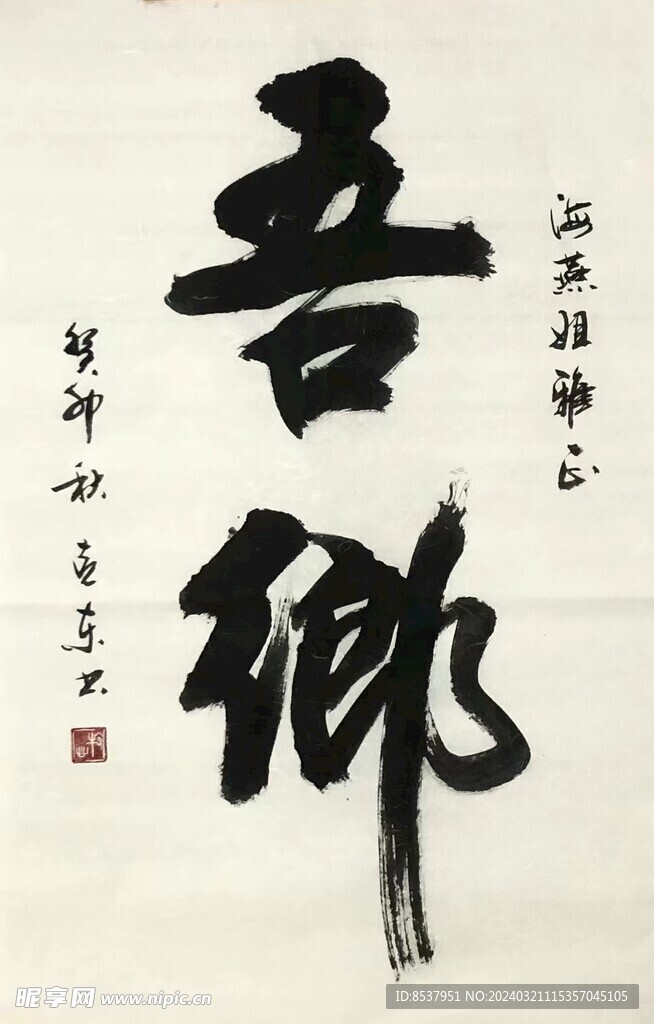 海燕姐雅正
吾鄉
癸卯秋 克东书
昵享网 www.nipic.cn
ID:8537951 NO:20240321115357045105